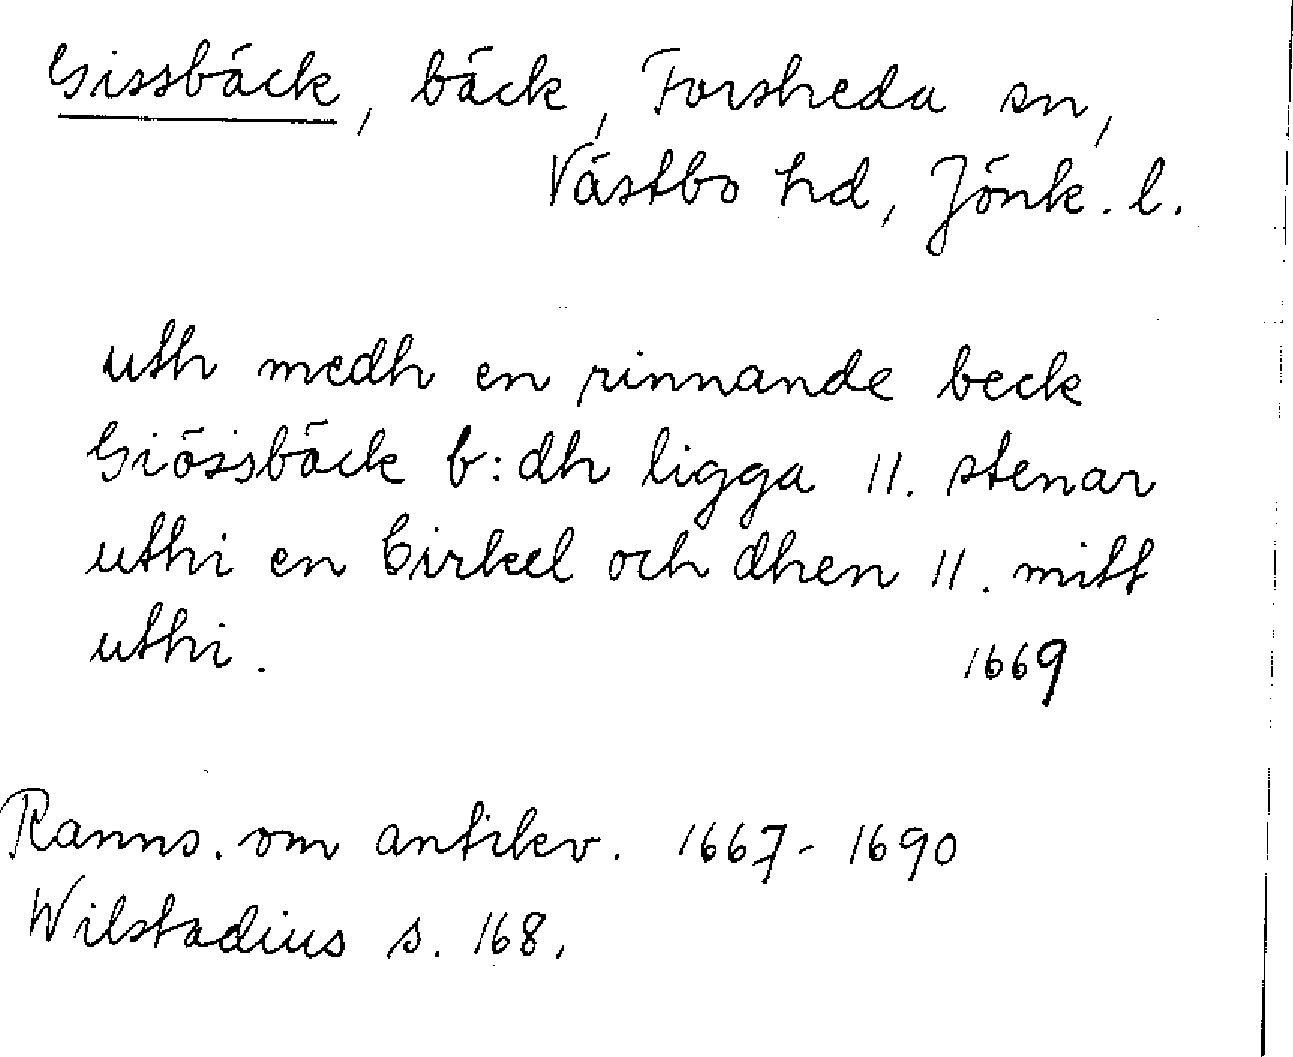 Gissbäck, bäck, Forsheda sn,
Västbo hd, Jönk. l.
uth medh en rinnande beck
Giössbäck b:dh ligga 11. stenar
uthi en Cirkel och dhen 11. mitt
uthi. 1669
Ranns. om antikv. 1667-1690
Wilstadius s. 168.